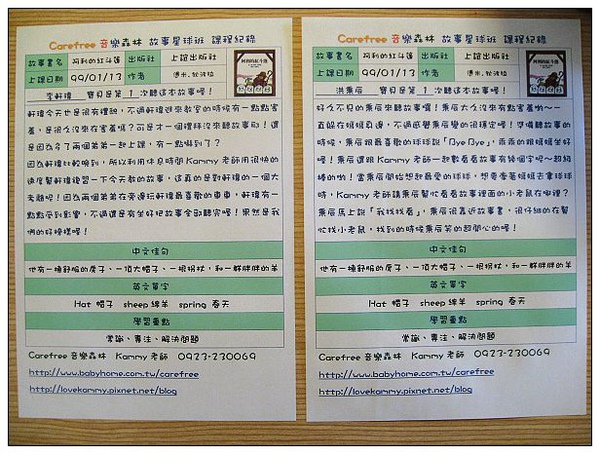 Carefree 音樂森林 故事星球班 課程紀錄
故事書名 阿利的紅斗篷 出版社 上誼出版社
上課日期 99/01/13 作者 湯米.狄波拉
李軒瑋 寶貝是第 1 次聽這本故事喔！
軒瑋今天也是很有禮貌，不過軒瑋進來教室的時候有一點點害
羞，是很久沒來在害羞嗎？可是才一個禮拜沒來聽故事勒！還
是因為多了兩個弟弟一起上課，有一點嚇到了？
因為軒瑋比較晚到，所以利用休息時間 Kammy 老師用很快的
速度幫軒瑋複習一下今天教的故事，這真的是對軒瑋的一個大
考驗呢！因為兩個弟弟在旁邊玩軒瑋最喜歡的車車，軒瑋有一
點點受到影響，不過還是有坐好把故事全部聽完喔！果然是我
們的好榜樣喔！
中文佳句
他有一棟舒服的房子、一頂大帽子、一根拐杖，和一群胖胖的羊
英文單字
Hat 帽子 sheep 綿羊 spring 春天
學習重點
常識、專注、解決問題
Carefree 音樂森林 Kammy 老師 0923-230069
http://www.babyhome.com.tw/carefree
http://lovekammy.pixnet.net/blog
Carefree 音樂森林 故事星球班 課程紀錄
故事書名 阿利的紅斗篷 出版社 上誼出版社
上課日期 99/01/13 作者 湯米.狄波拉
洪秉辰 寶貝是第 1 次聽這本故事喔！
好久不見的秉辰來聽故事囉！秉辰太久沒來有點害羞喲～
直躲在媽媽身邊，不過感覺秉辰變的很穩定喔！準備聽故事的
時候，秉辰跟最喜歡的球球說「Bye Bye」，乖乖的跟媽媽坐好
喔！秉辰還跟 Kammy 老師一起數看看故事有幾個字呢～超級
棒的喲！當秉辰開始想起最愛的球球，想要牽著媽媽去拿球球
時，Kammy 老師請秉辰幫忙看看故事裡面的小老鼠在哪裡？
秉辰馬上說「我找找看」，秉辰很靠近故事書，很仔細的在幫
忙找小老鼠，找到的時候秉辰笑的超開心的喔！
中文佳句
他有一棟舒服的房子、一頂大帽子、一根拐杖，和一群胖胖的羊
英文單字
Hat 帽子 sheep 綿羊 spring 春天
學習重點
常識、專注、解決問題
Carefree 音樂森林 Kammy 老師 0923-230069
http://www.babyhome.com.tw/carefree
http://lovekammy.pixnet.net/blog